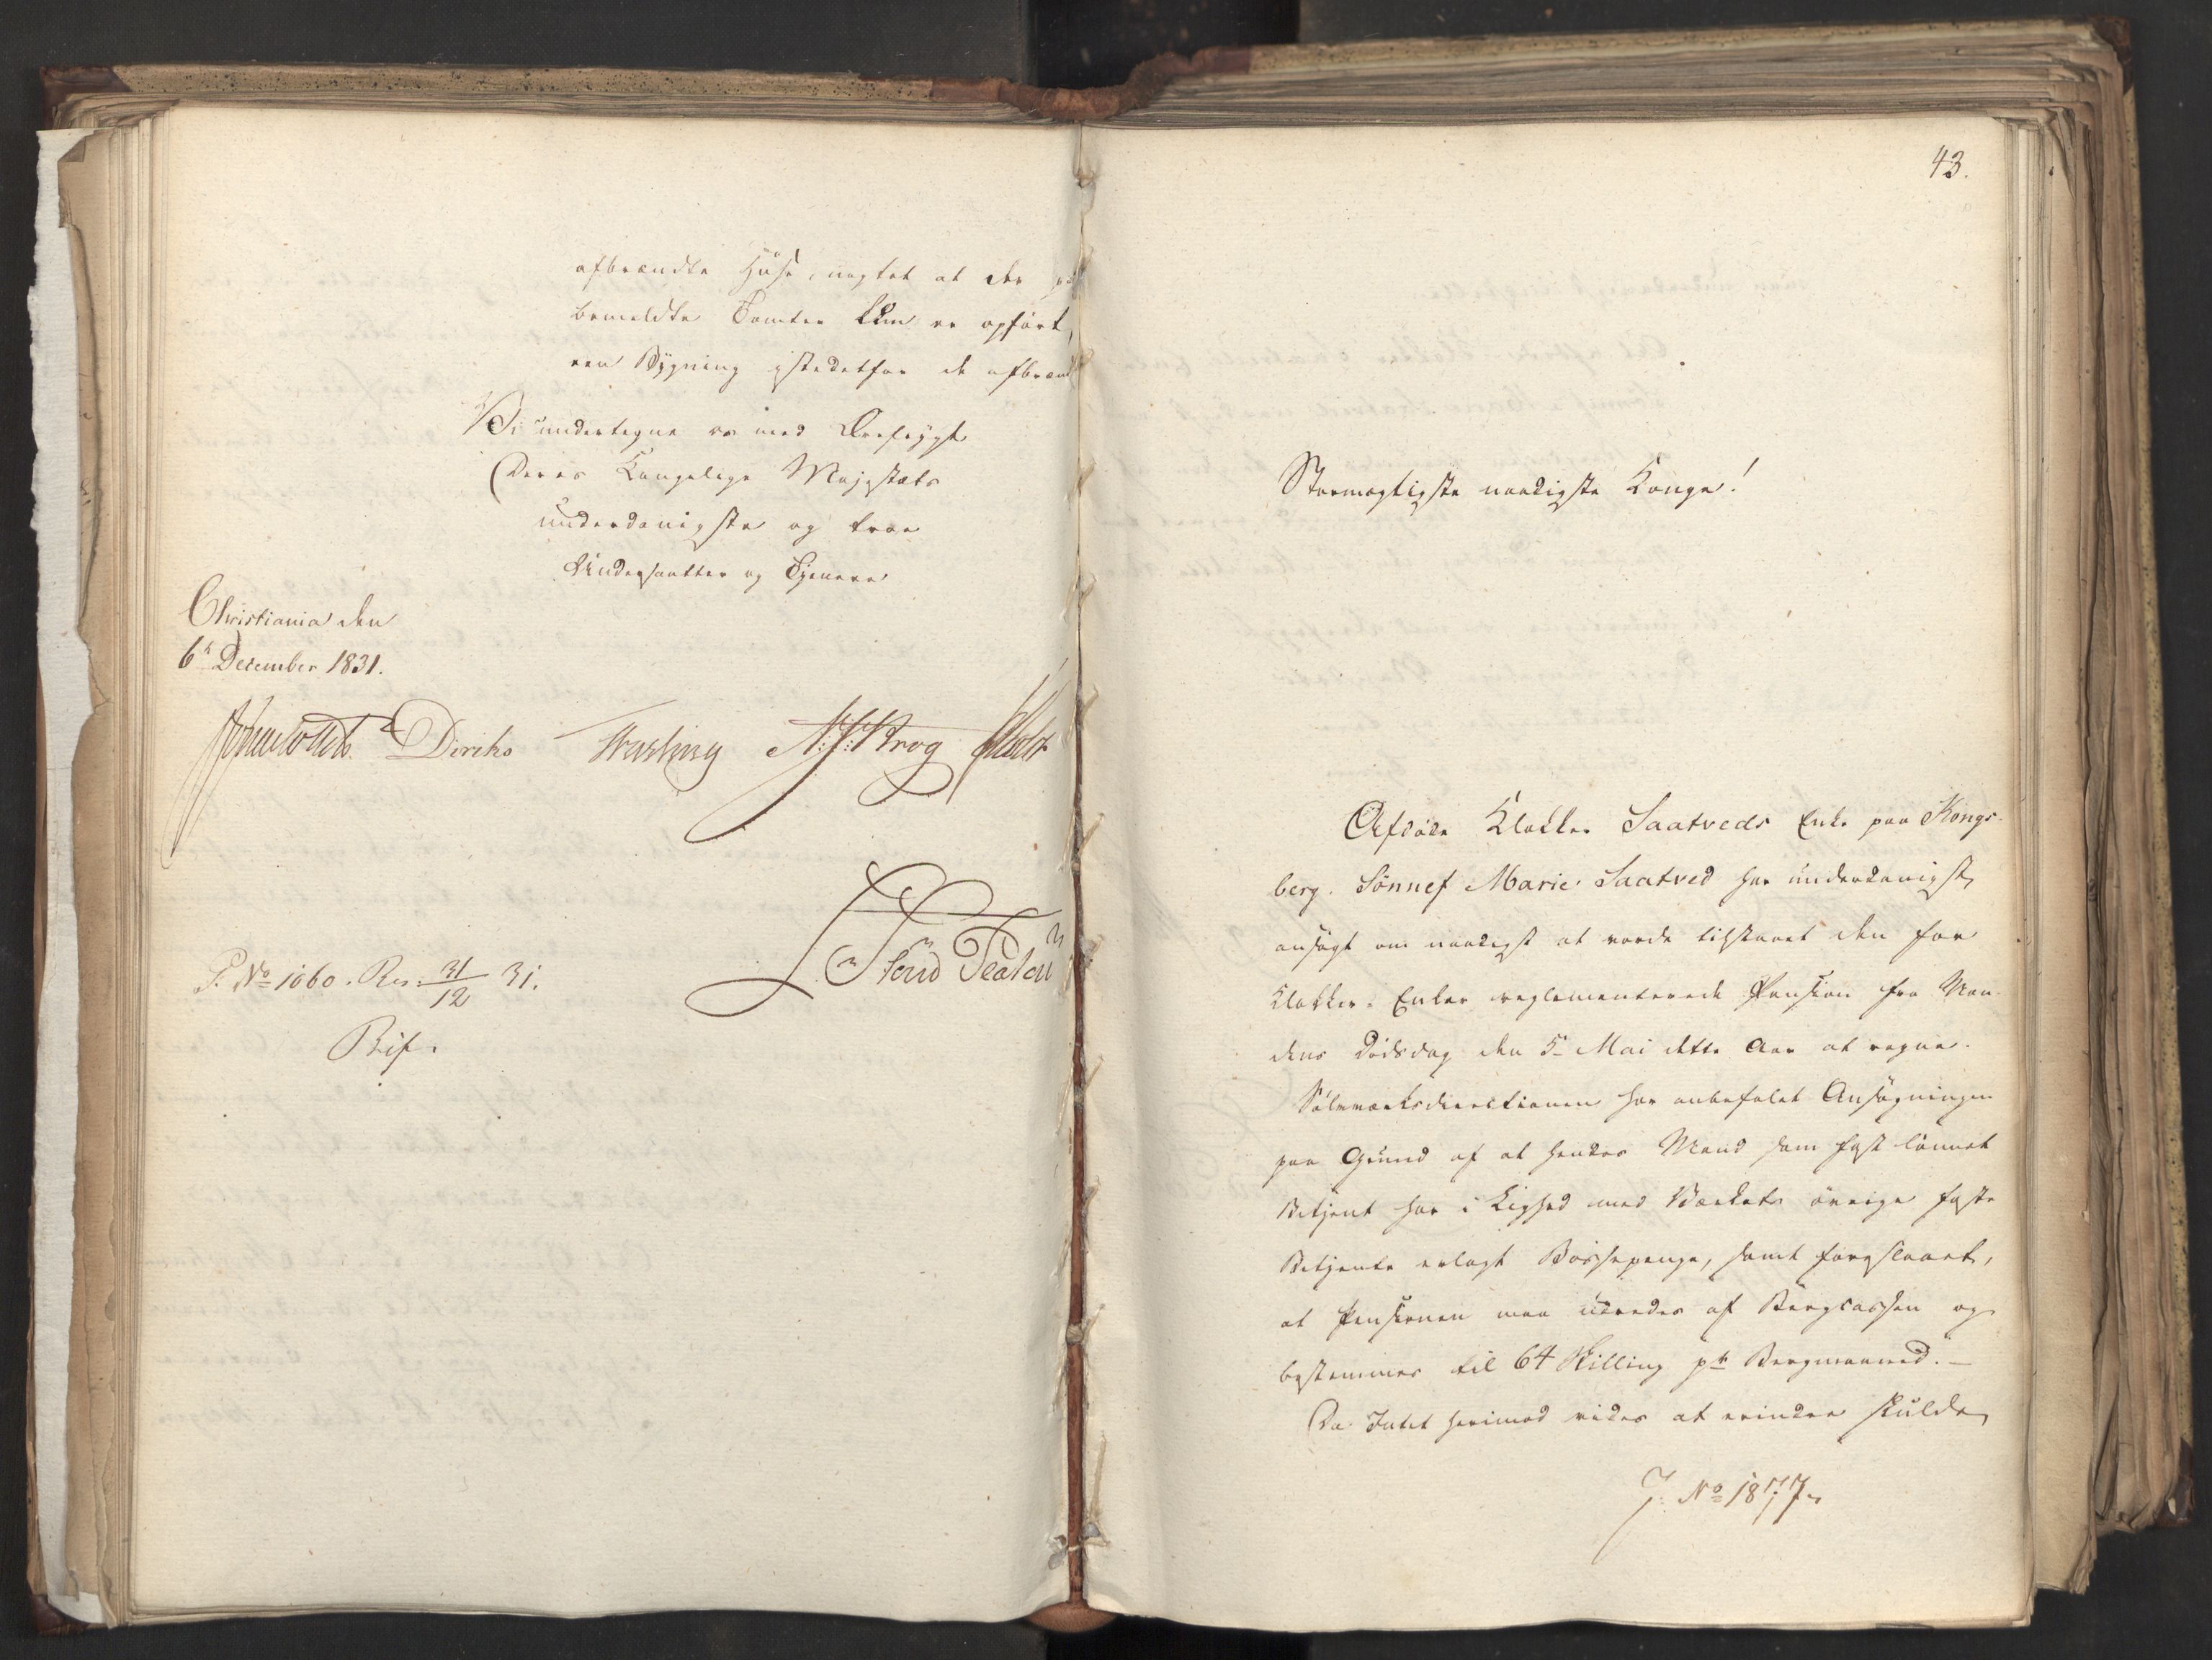 afbrændte Huse, uagtet at der paa
bemeldte Tomter kun er opført
een Bygning istedetfor de afbrændte
Vi undertegne os med Ærefrygt
Deres Kongelige Majestæts
underdanigste og troe
Undersaatter og Tjenere
Christiania den
6te December 1831.
Diriks N: J: Krog
P. No 1060. Res. 31/12 31.
Bif.
43.
Stormægtigste naadigste Konge!
Afdøde Klokker Saatveds Enke paa Kongs-
berg. Sønnef Marie Saatved har underdanigst
ansøgt om naadigst at vorde tilstaaet den for
Klokker-Enker reglementerede Pension fra Man-
dens Dødsdag den 5te Mai dette Aar at regne.
Sølvværksdirectionen har anbefalet Ansøgningen
paa Grund af at hendes Mand som fast lønnet
Betjent har i Lighed med Værkets øvrige faste
Betjente erlagt Bøssepenge, samt foreslaaet,
at Pensionen maa udredes af Bergcassen og
bestemmes til 64 Skilling pr Bergmaaned. —
Da Intet herimod vides at erindre skulde
J. No 1877.